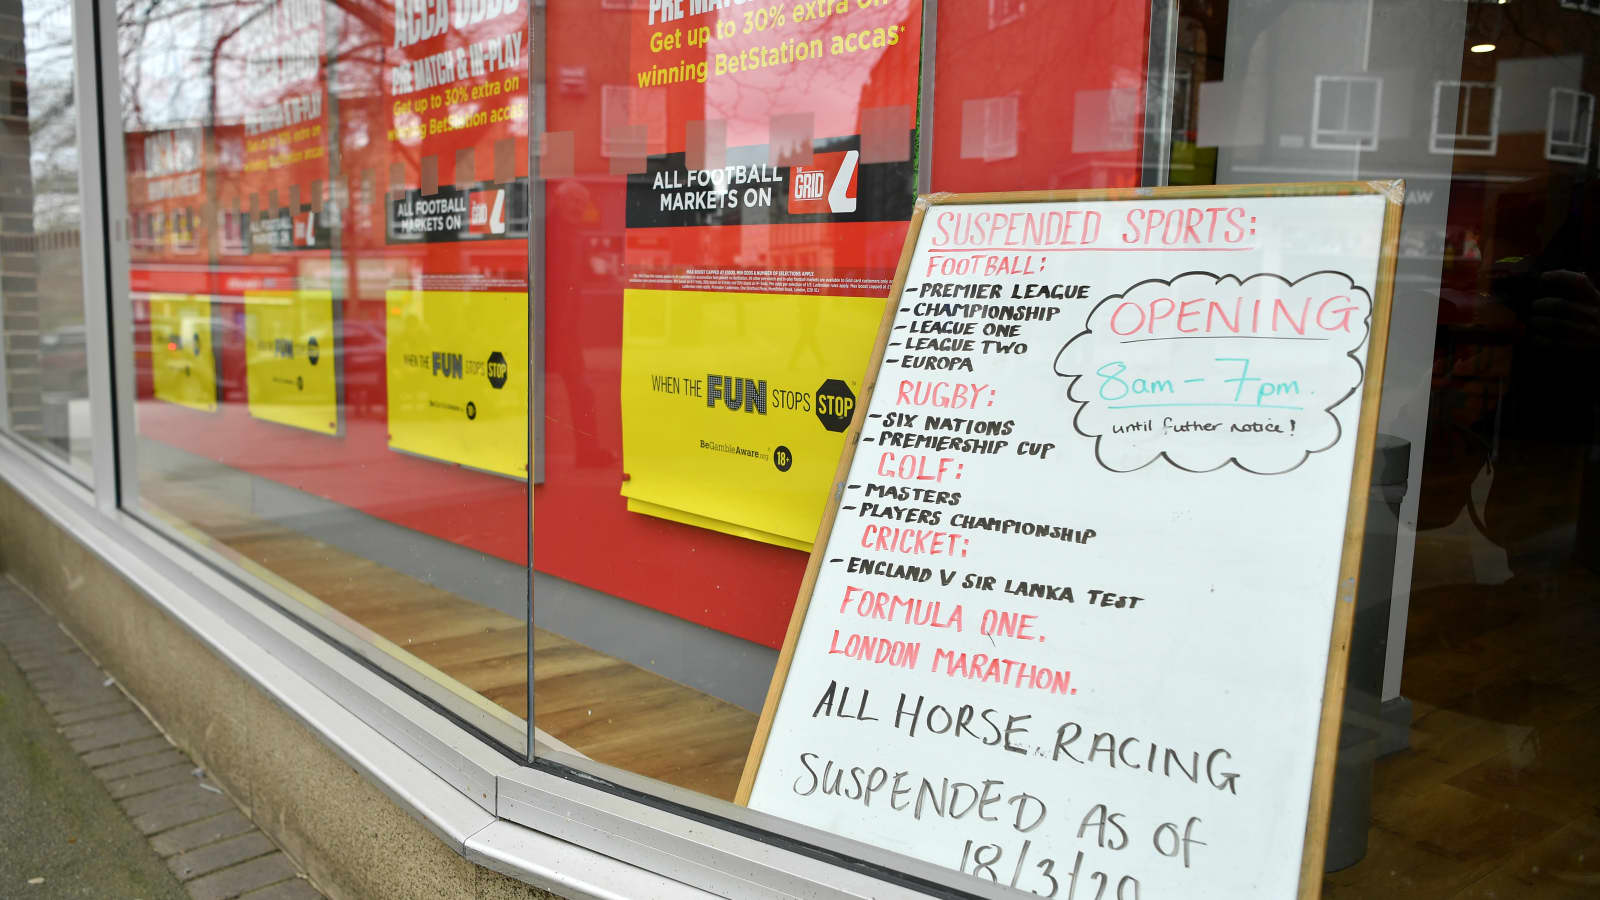 ACCA ODDS
PRE MATCH & IN-PLAY
Get up to 30% extra on
winning BetStation accas
ALL FOOTBALL
MARKETS ON
THE GRID
PRE MATCH
Get up to 30% extra on
winning BetStation accas*
ALL FOOTBALL
MARKETS ON
THE GRID
WHEN THE FUN STOPS STOP
18+
WHEN THE FUN STOPS STOP
BeGambleAware.org 18+
SUSPENDED SPORTS:
FOOTBALL:
- PREMIER LEAGUE
- CHAMPIONSHIP
- LEAGUE ONE
- LEAGUE TWO
- EUROPA
RUGBY:
- SIX NATIONS
- PREMIERSHIP CUP
GOLF:
- MASTERS
- PLAYERS CHAMPIONSHIP
CRICKET:
- ENGLAND V SIR LANKA TEST
FORMULA ONE.
LONDON MARATHON.
ALL HORSE RACING
SUSPENDED AS OF
18/3/20
OPENING
8am - 7pm.
until futher notice!